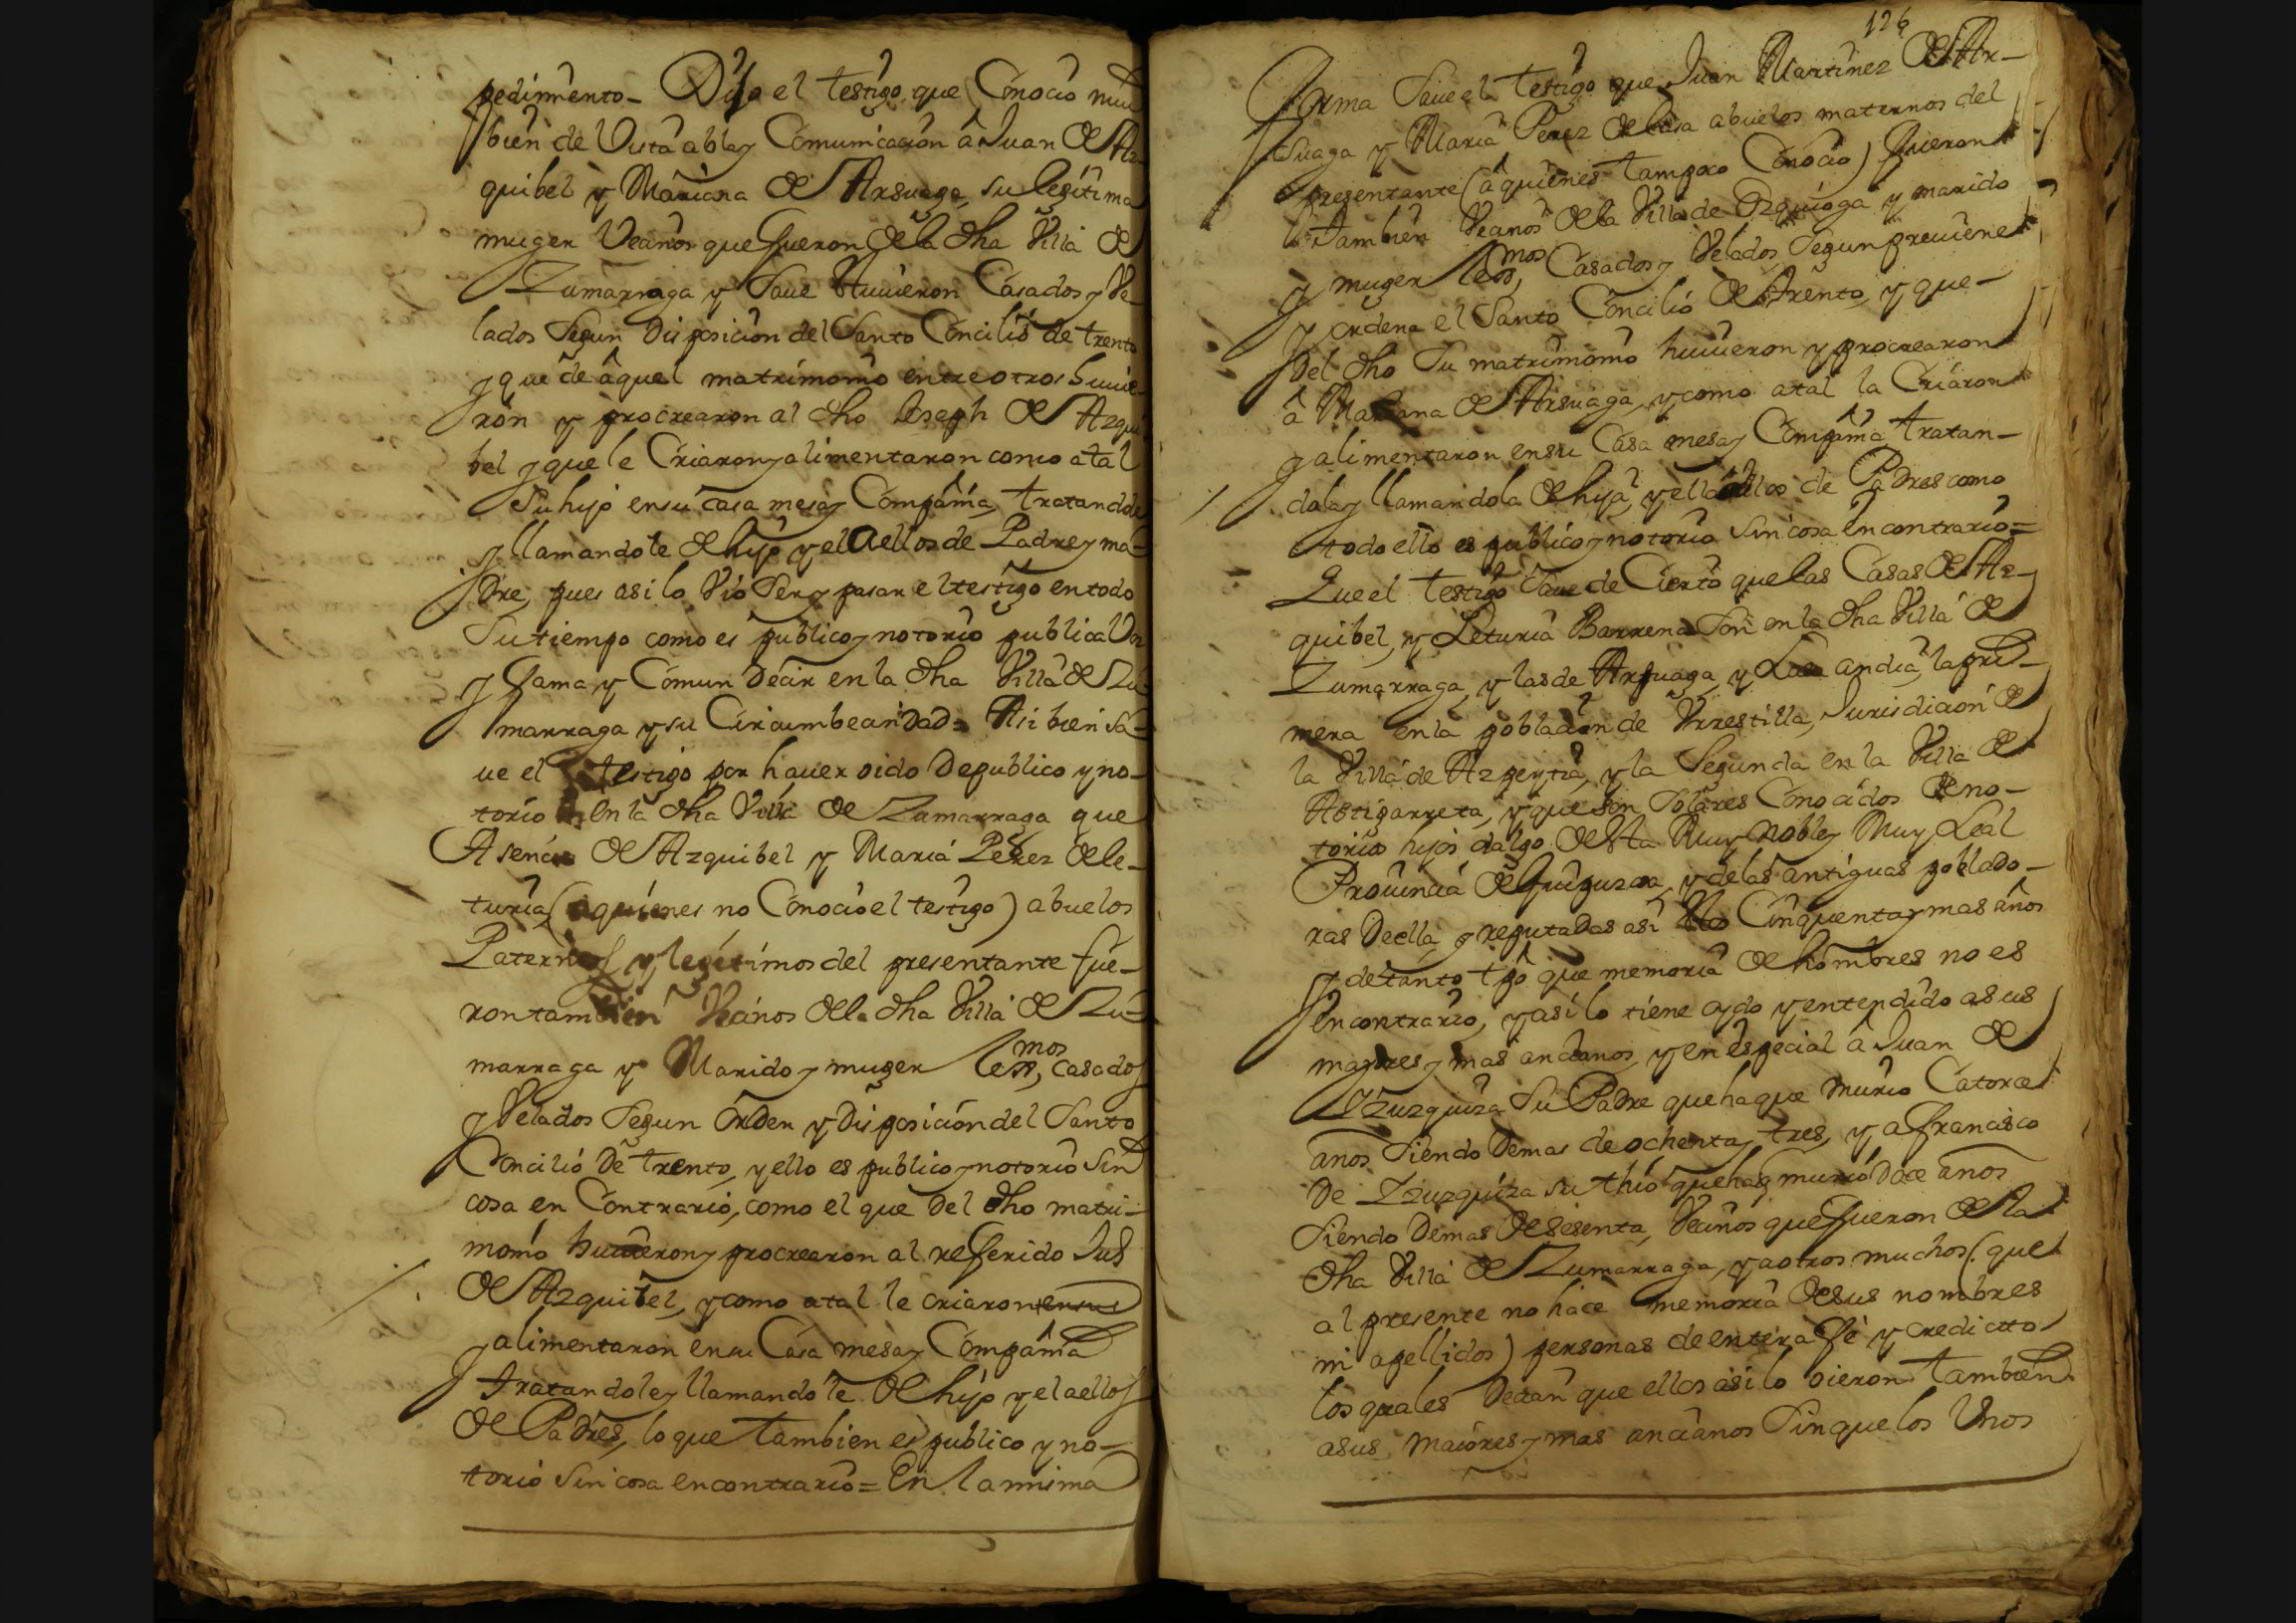 pedimiento_ Dijo el testigo que Conocio mui
bien de Vista abla y Comunicacion â Juan de Az
quibel y Mariana de Arsuaga, su legitima
muger Vecinos que fueron de la dha Villa de
Zumarraga y Save Huuieron Casados y Ve
lados Segun Disposicion del Santo Concilio de trento
y que de âquel matrimonio entre otros huuie
ron y procrearon al dho Joseph de Azqui
bel y que le Criaron y alimentaron como a tal
Su hijo en su casa mesa y Compañia, tratandole
y llamandole de hijo y el a ellos de Padre y ma-
Dre, pues asi lo Vio Ser y pasar el testigo en todo
Su tiempo como es publico y notorio publica Voz
y fama y Comun Decir en la dha Villa de Zu
marraga y su Circumbecindad = Asi bien sa-
ue el testigo por hauer oido De publico y no-
torio en la dha Villa de Zumarraga que
Asencio de Azquibel y Maria Perez de le-
turia (a quienes no Conocio el testigo) abuelos
Paternos y legitimos del presentante fue-
ron tambien Vecinos de la dha Villa de Zu-
marraga y Marido y muger lexmos, casados
y Velados Segun Orden y Disposicion del Santo
Concilio De trento, y ello es publico y notorio Sin
cosa en Contrario, como el que Del dho matri-
monio huuieron y procrearon al referido Juº
de Azquibel, y como atal le criaron
y alimentaron en su Casa mesa y Compañia
tratandole y llamandole de hijo y el a ellos
de Padres, lo que tambien es publico y no-
torio Sin cosa en contrario = En la misma
126
forma Saue el testigo que Juan Martinez de Ar-
Suaga y Maria Perez de Lasa abuelos maternos del
presentante (â quienes tampoco Conocio) fueron
tambien Vecinos de la Villa de Ezquioga y marido
y muger lexmos, Casados y Velados Segun preuiene
y ordena el Santo Concilio de Trento, y que-
Del dho Su matrimonio huuieron y procrearon
â Mariana de Arsuaga, y como atal la Criaron
y alimentaron en su Casa mesa y Compañia tratan-
dola y llamandola de hija, y ella a ellos de Padres como
todo ello es publico y notorio Sin cosa en contrario =
Que el testigo Saue de Cierto que las Casas de Az-
quibel, y Leturia Barrena Son en la dha Villa de
Zumarraga, y las de Arsuaga, y Lasa andia, la pri-
mera en la poblacion de Vrrestilla, Jurisdicion de
la Villa de Azpeytia, y la Segunda en la Villa de
Astigarreta, y que son Solares Conocidos de no-
torios hijos dalgo de esta Muy Noble y Muy Leal
Prouincia de Guipuzcoa, y de las antiguas poblado-
ras De ella, y reputadas asi Cinquenta y mas años
y de tanto tpô que memoria de hombres no es
en contrario, y asi lo tiene oydo y entendido a sus
mayores y mas ancianos, y en especial â Juan de
Yzuzquiza Su Padre que ha que murio Catorce
anos Siendo Demas de ochenta y tres, y a francisco
De Yzuzquiza su thio que ha q murio Doce anos
Siendo Demas de sesenta, Vecinos que fueron de la
dha Villa de Zumarraga, y a otros muchos (que
al presente no hace memoria de sus nombres
ni apellidos) personas de entera fe y credicto
los quales Decian que ellos asi lo oieron tambien
a sus maiores y mas ancianos Sin que los Vnos